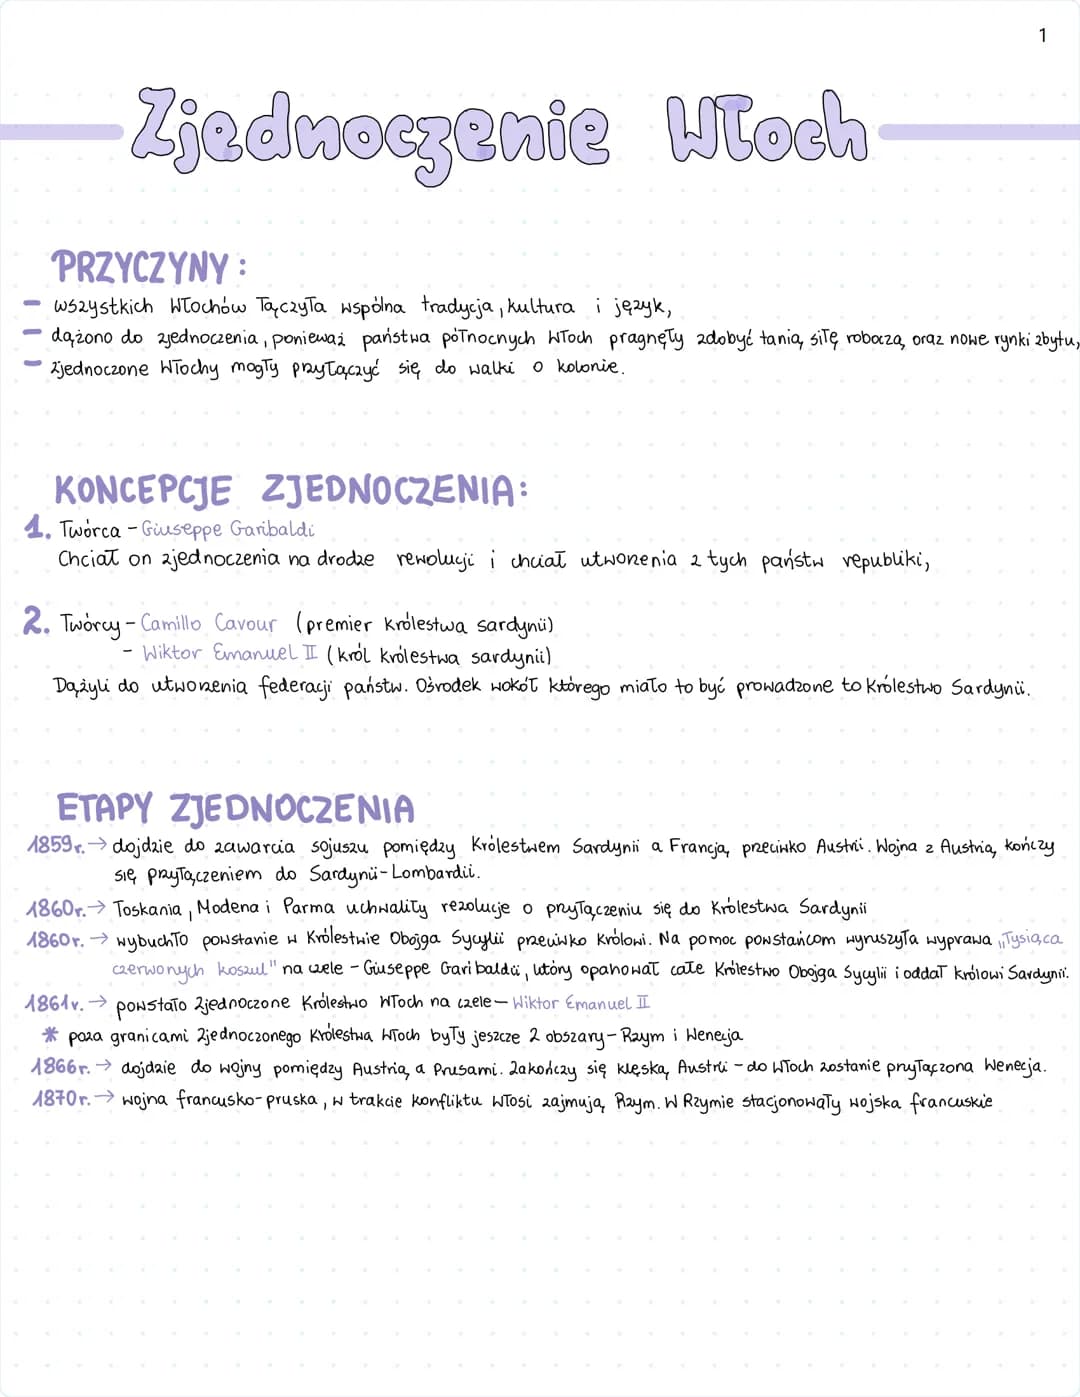 1
Zjednoczenie Włoch
PRZYCZYNY:
- wszystkich Włochów łączyła wspólna tradycja, kultura i język,
- dążono do zjednoczenia, ponieważ państwa północnych Włoch pragnęły zdobyć tanią siłę roboczą oraz nowe rynki zbytu,
- zjednoczone Włochy mogły przyłączyć się do walki o kolonie.
KONCEPCJE ZJEDNOCZENIA:
1. Twórca - Giuseppe Garibaldi
Chciał on zjednoczenia na drodze rewolucji i chciał utworzenia z tych państw republiki,
2. Twórcy - Camillo Cavour (premier Królestwa sardynii)
- Wiktor Emanuel II (król Królestwa sardynii)
Dążyli do utworzenia federacji państw. Ośrodek wokół którego miało to być prowadzone to Królestwo Sardynii.
ETAPY ZJEDNOCZENIA
1859r. → dojdzie do zawarcia sojuszu pomiędzy Królestwem Sardynii a Francją przeciwko Austrii. Wojna z Austrią kończy
się przyłączeniem do Sardynii - Lombardii.
1860r. → Toskania, Modena i Parma uchwaliły rezolucje o przyłączeniu się do Królestwa Sardynii
1860r. → wybuchło powstanie w Królestwie Obojga Sycylii przeciwko Królowi. Na pomoc powstańcom wyruszyła wyprawa „Tysiąca
czerwonych koszul" na czele - Giuseppe Garibaldii, który opanował całe Królestwo Obojga Sycylii i oddał królowi Sardynii.
1861r. → powstało zjednoczone Królestwo Włoch na czele - Wiktor Emanuel II
* poza granicami zjednoczonego Królestwa Włoch były jeszcze 2 obszary - Rzym i Wenecja
1866r. → dojdzie do wojny pomiędzy Austrią a Prusami. Zakończy się klęską Austrii - do Włoch zostanie przyłączona Wenecja.
1870r. → wojna francusko-pruska, w trakcie konfliktu Włosi zajmują Rzym. W Rzymie stacjonowały wojska francuskie